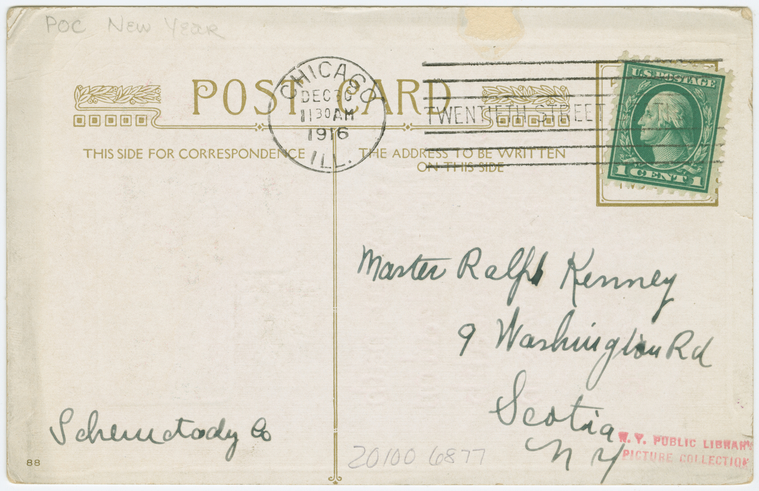 POC New Year
POST CARD
CHICAGO
DEC 30
11 30 AM
1916
ILL.
TWENTIETH STREET
U.S. POSTAGE
1 CENT 1
THIS SIDE FOR CORRESPONDENCE
THE ADDRESS TO BE WRITTEN
ON THIS SIDE
Master Ralph Kenney
9 Washington Rd
Scotia
N Y
Schenectady Co
N. Y. PUBLIC LIBRARY
PICTURE COLLECTION
20100 6877
88